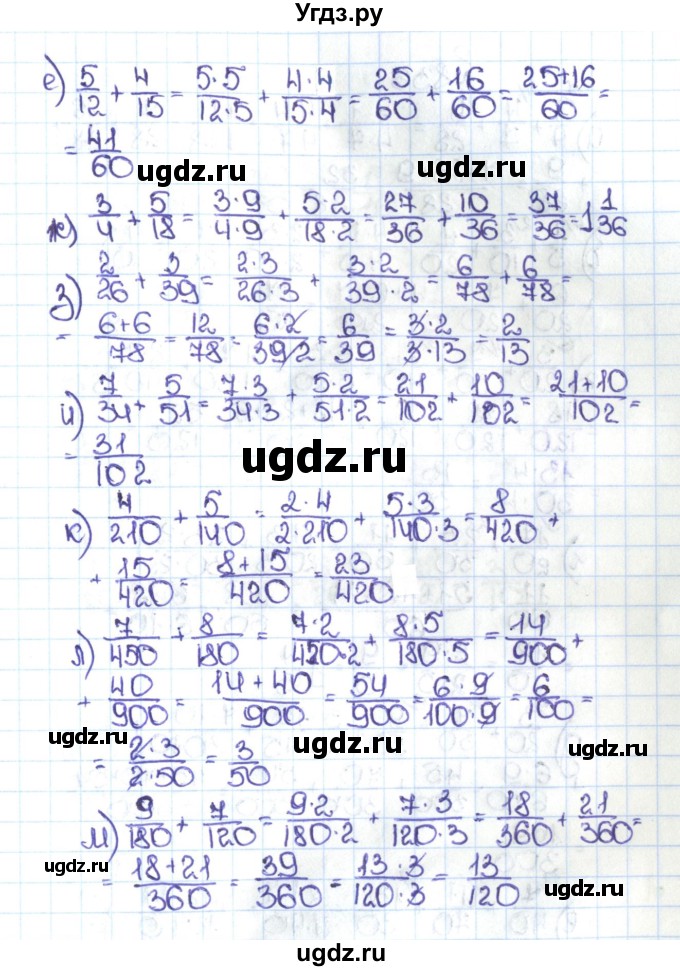 Угдз.ру
е) 5/12 + 4/15 = 5·5/12·5 + 4·4/15·4 = 25/60 + 16/60 = 25+16/60 =
= 41/60
ugdz.ru ugdz.ru
ж) 3/4 + 5/18 = 3·9/4·9 + 5·2/18·2 = 27/36 + 10/36 = 37/36 = 1 1/36
з) 2/26 + 3/39 = 2·3/26·3 + 3·2/39·2 = 6/78 + 6/78 =
= 6+6/78 = 12/78 = 6·2/39·2 = 6/39 = 3·2/3·13 = 2/13
и) 7/34 + 5/51 = 7·3/34·3 + 5·2/51·2 = 21/102 + 10/102 = 21+10/102 =
= 31/102
ugdz.ru
к) 4/210 + 5/140 = 2·4/2·210 + 5·3/140·3 = 8/420 +
+ 15/420 = 8+15/420 = 23/420
л) 7/450 + 8/180 = 7·2/450·2 + 8·5/180·5 = 14/900 +
+ 40/900 = 14+40/900 = 54/900 = 6·9/100·9 = 6/100 =
ugdz.ru ugdz.ru ugdz.ru
= 2·3/2·50 = 3/50
м) 9/180 + 7/120 = 9·2/180·2 + 7·3/120·3 = 18/360 + 21/360 =
ugdz.ru
= 18+21/360 = 39/360 = 13·3/120·3 = 13/120
ugdz.ru
ugdz.ru